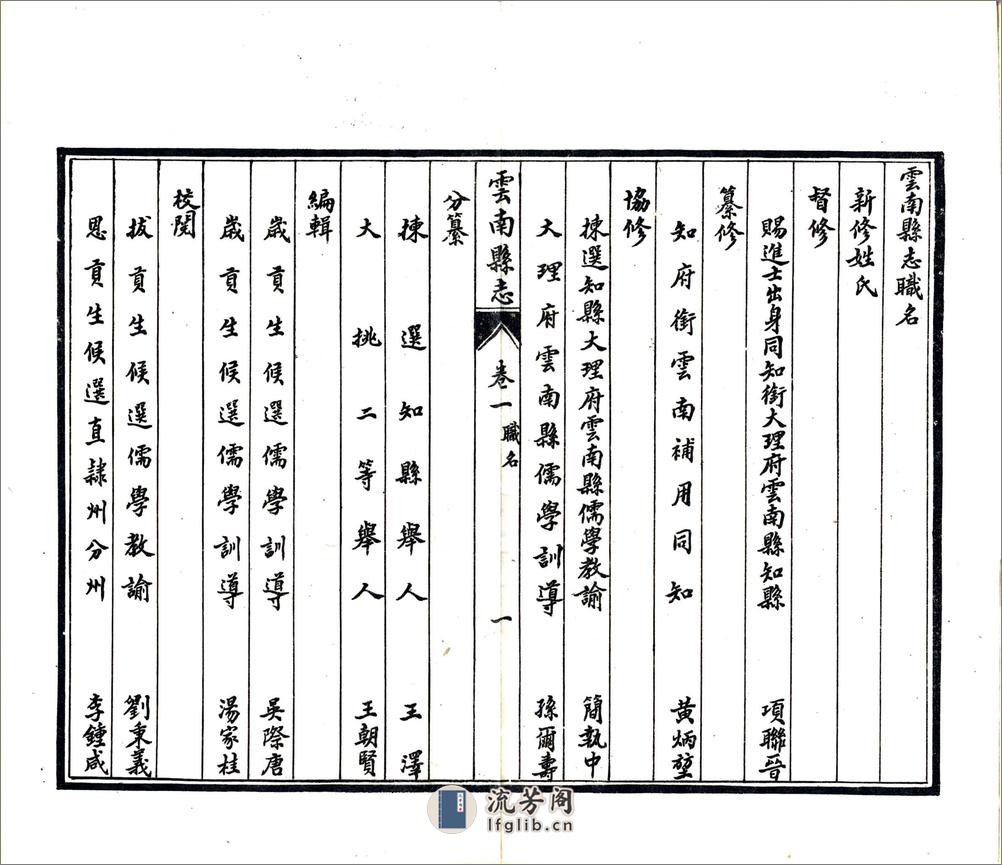 雲南縣志職名
新修姓氏
督修
賜進士出身同知銜大理府雲南縣知縣 項聯晉
纂修
知府銜雲南補用同知 黃炳堃
協修
揀選知縣大理府雲南縣儒學教諭 簡執中
大理府雲南縣儒學訓導 孫爾壽
雲南縣志 卷一 職名 一
分纂
揀選知縣舉人 王澤
大挑二等舉人 王朝賢
編輯
歲貢生候選儒學訓導 吳際唐
歲貢生候選儒學訓導 湯家桂
校閱
拔貢生候選儒學教諭 劉秉義
恩貢生候選直隸州分州 李鍾咸
流芳阁
lfglib.cn